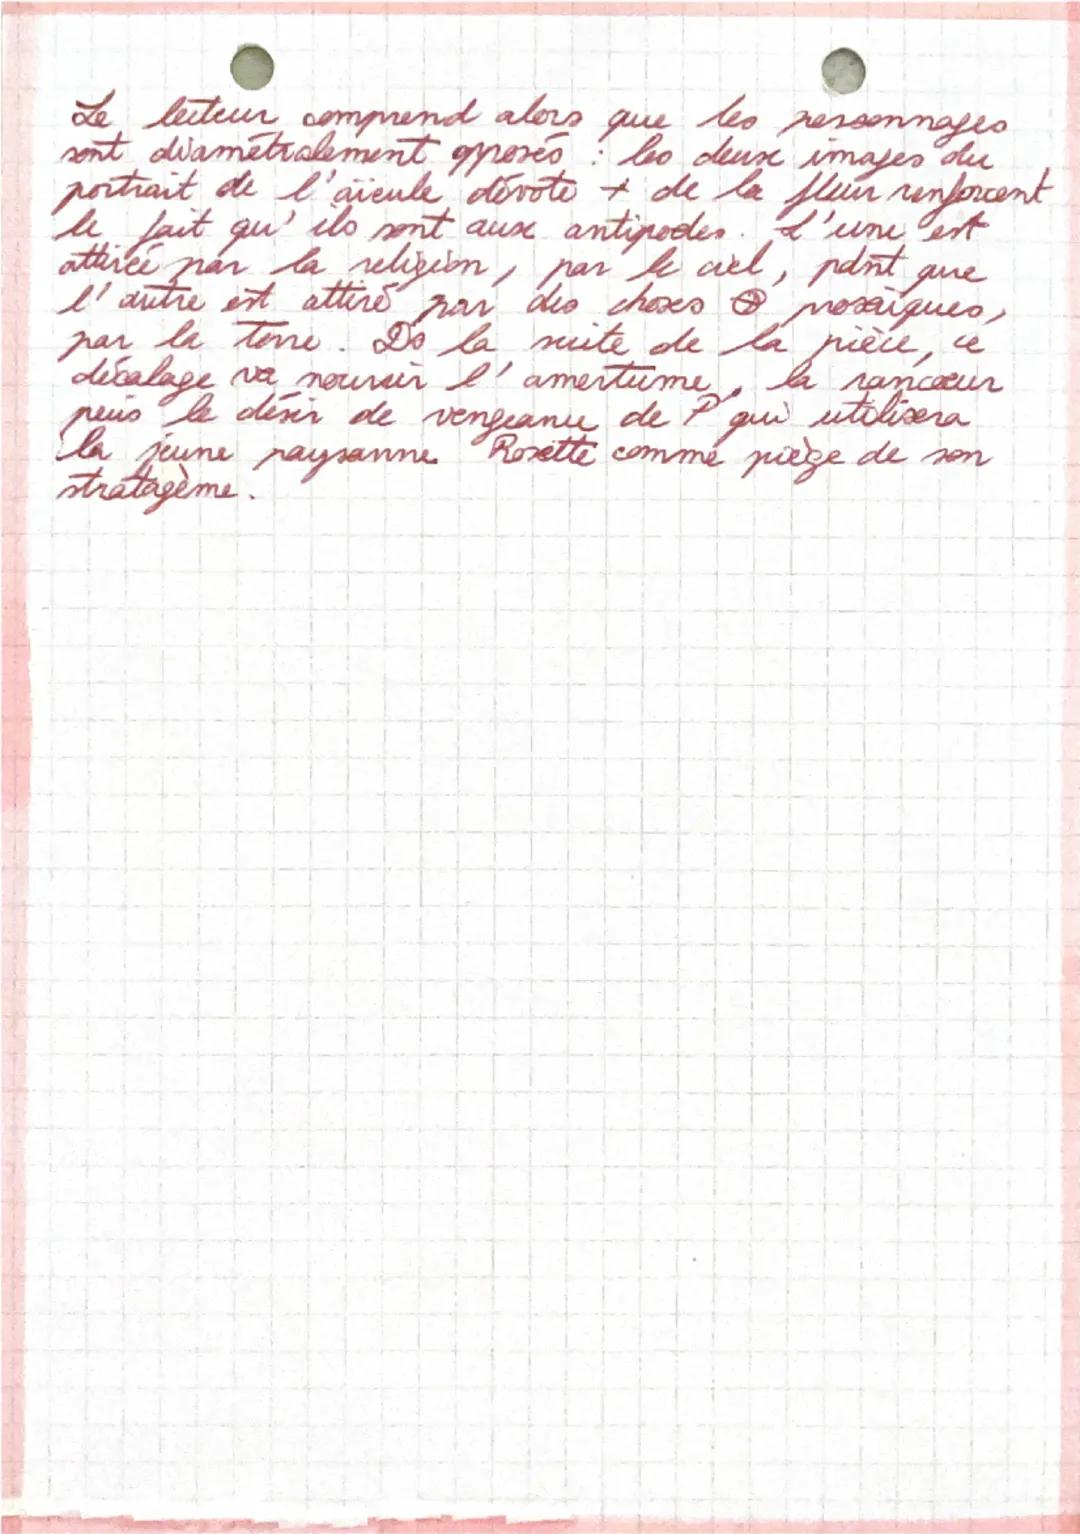 Le lecteur comprend alors que les personnages
sont diamétralement opposés : les deux images du
portrait de l'aïeule dévote + de la fleur renforcent
le fait qu'ils sont aux antipodes. L'une est
attirée par la religion, par le ciel, pdnt que
l'autre est attiré par des choses ⊕ prosaïques,
par la Terre. Ds la suite de la pièce, ce
décalage va nourrir l'amertume, la rancœur
puis le désir de vengeance de P. qui utilisera
la jeune paysanne Rosette comme piège de son
stratagème.